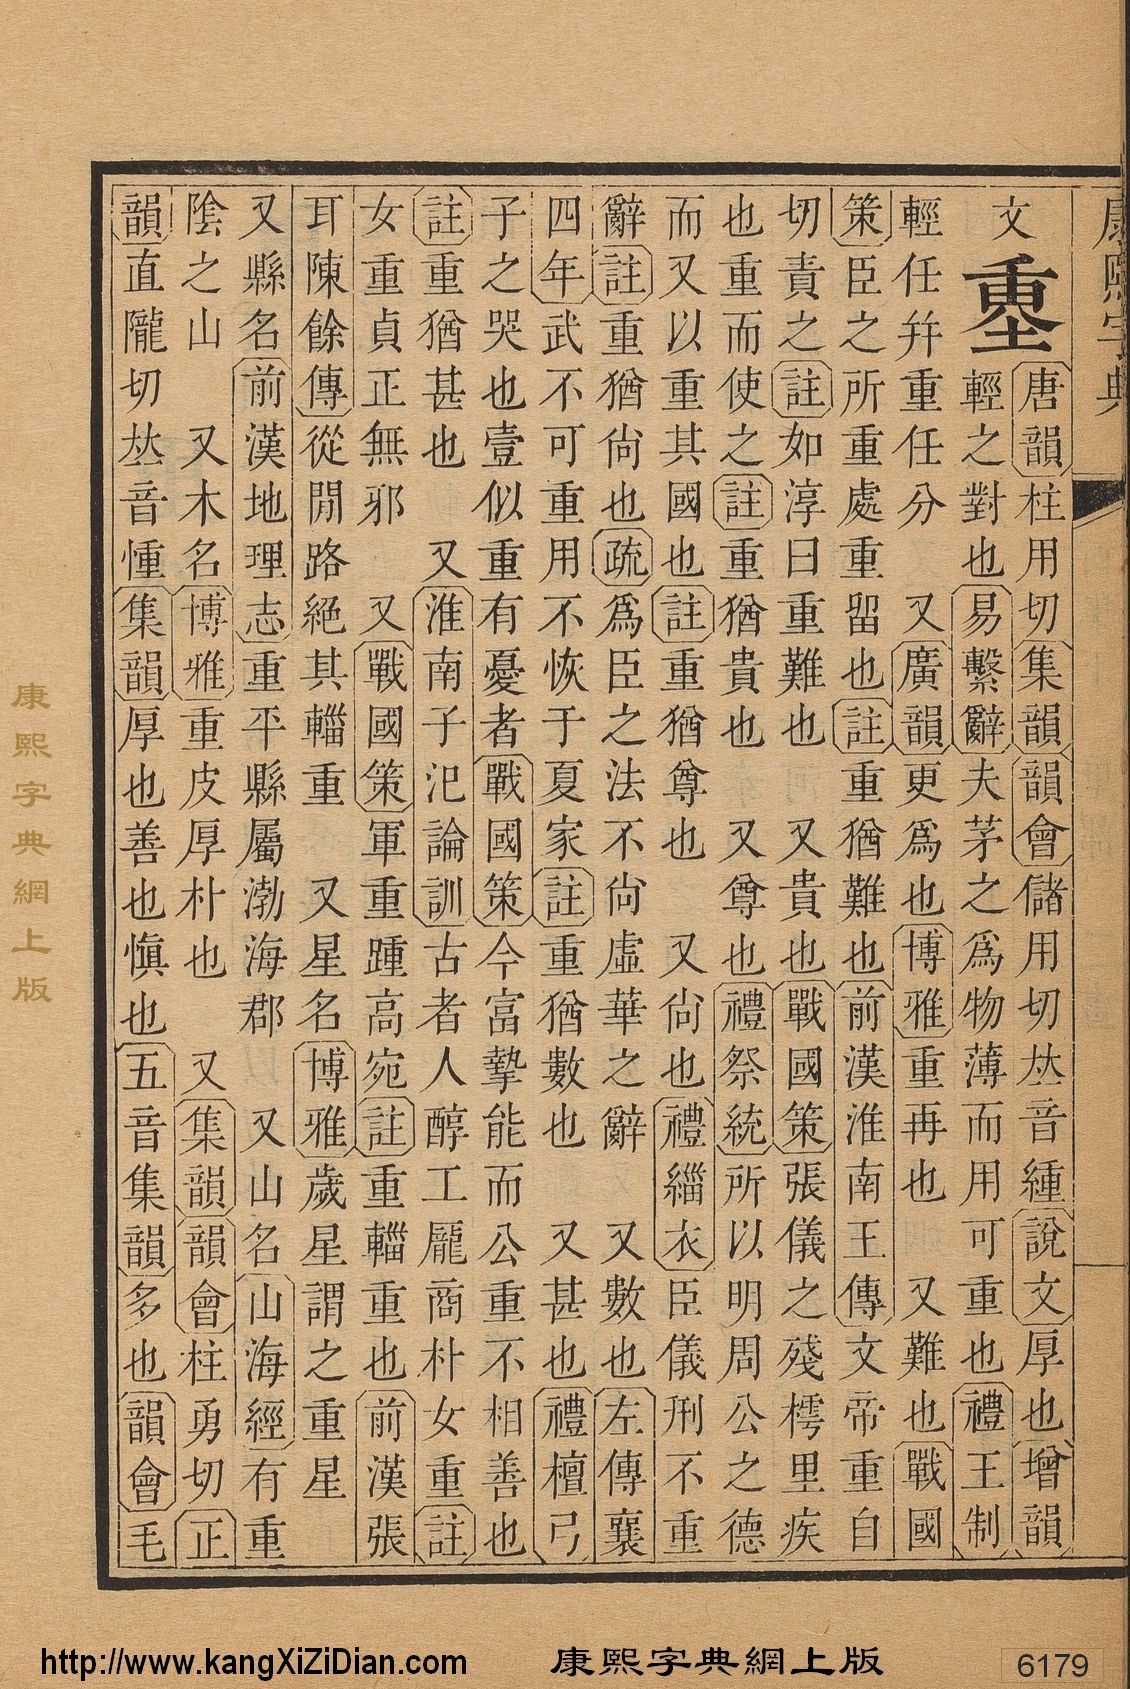 康熙字典
文
重
唐韻柱用切集韻韻會儲用切𠀤音緟說文厚也增韻
輕之對也易繫辭夫茅之爲物薄而用可重也禮王制
輕任幷重任分 又廣韻更爲也博雅重再也 又難也戰國
策臣之所重處重留也註重猶難也前漢淮南王傳文帝重自
切責之註如淳曰重難也 又貴也戰國策張儀之殘樗里疾
也重而使之註重猶貴也 又尊也禮祭統所以明周公之德
而又以重其國也註重猶尊也 又尙也禮緇衣臣儀刑不重
辭註重猶尙也疏爲臣之法不尙虛華之辭 又數也左傳襄
四年武不可重用不恢于夏家註重猶數也 又甚也禮檀弓
子之哭也壹似重有憂者戰國策今富摯能而公重不相善也
註重猶甚也 又淮南子氾論訓古者人醇工龎商朴女重註
女重貞正無邪 又戰國策軍重踵高宛註重輜重也前漢張
耳陳餘傳從閒路絕其輜重 又星名博雅歲星謂之重星
又縣名前漢地理志重平縣屬渤海郡 又山名山海經有重
陰之山 又木名博雅重皮厚朴也 又集韻韻會柱勇切正
韻直隴切𠀤音㣫集韻厚也善也愼也五音集韻多也韻會毛
康熙字典網上版
http://www.kangXiZiDian.com 康熙字典網上版 6179